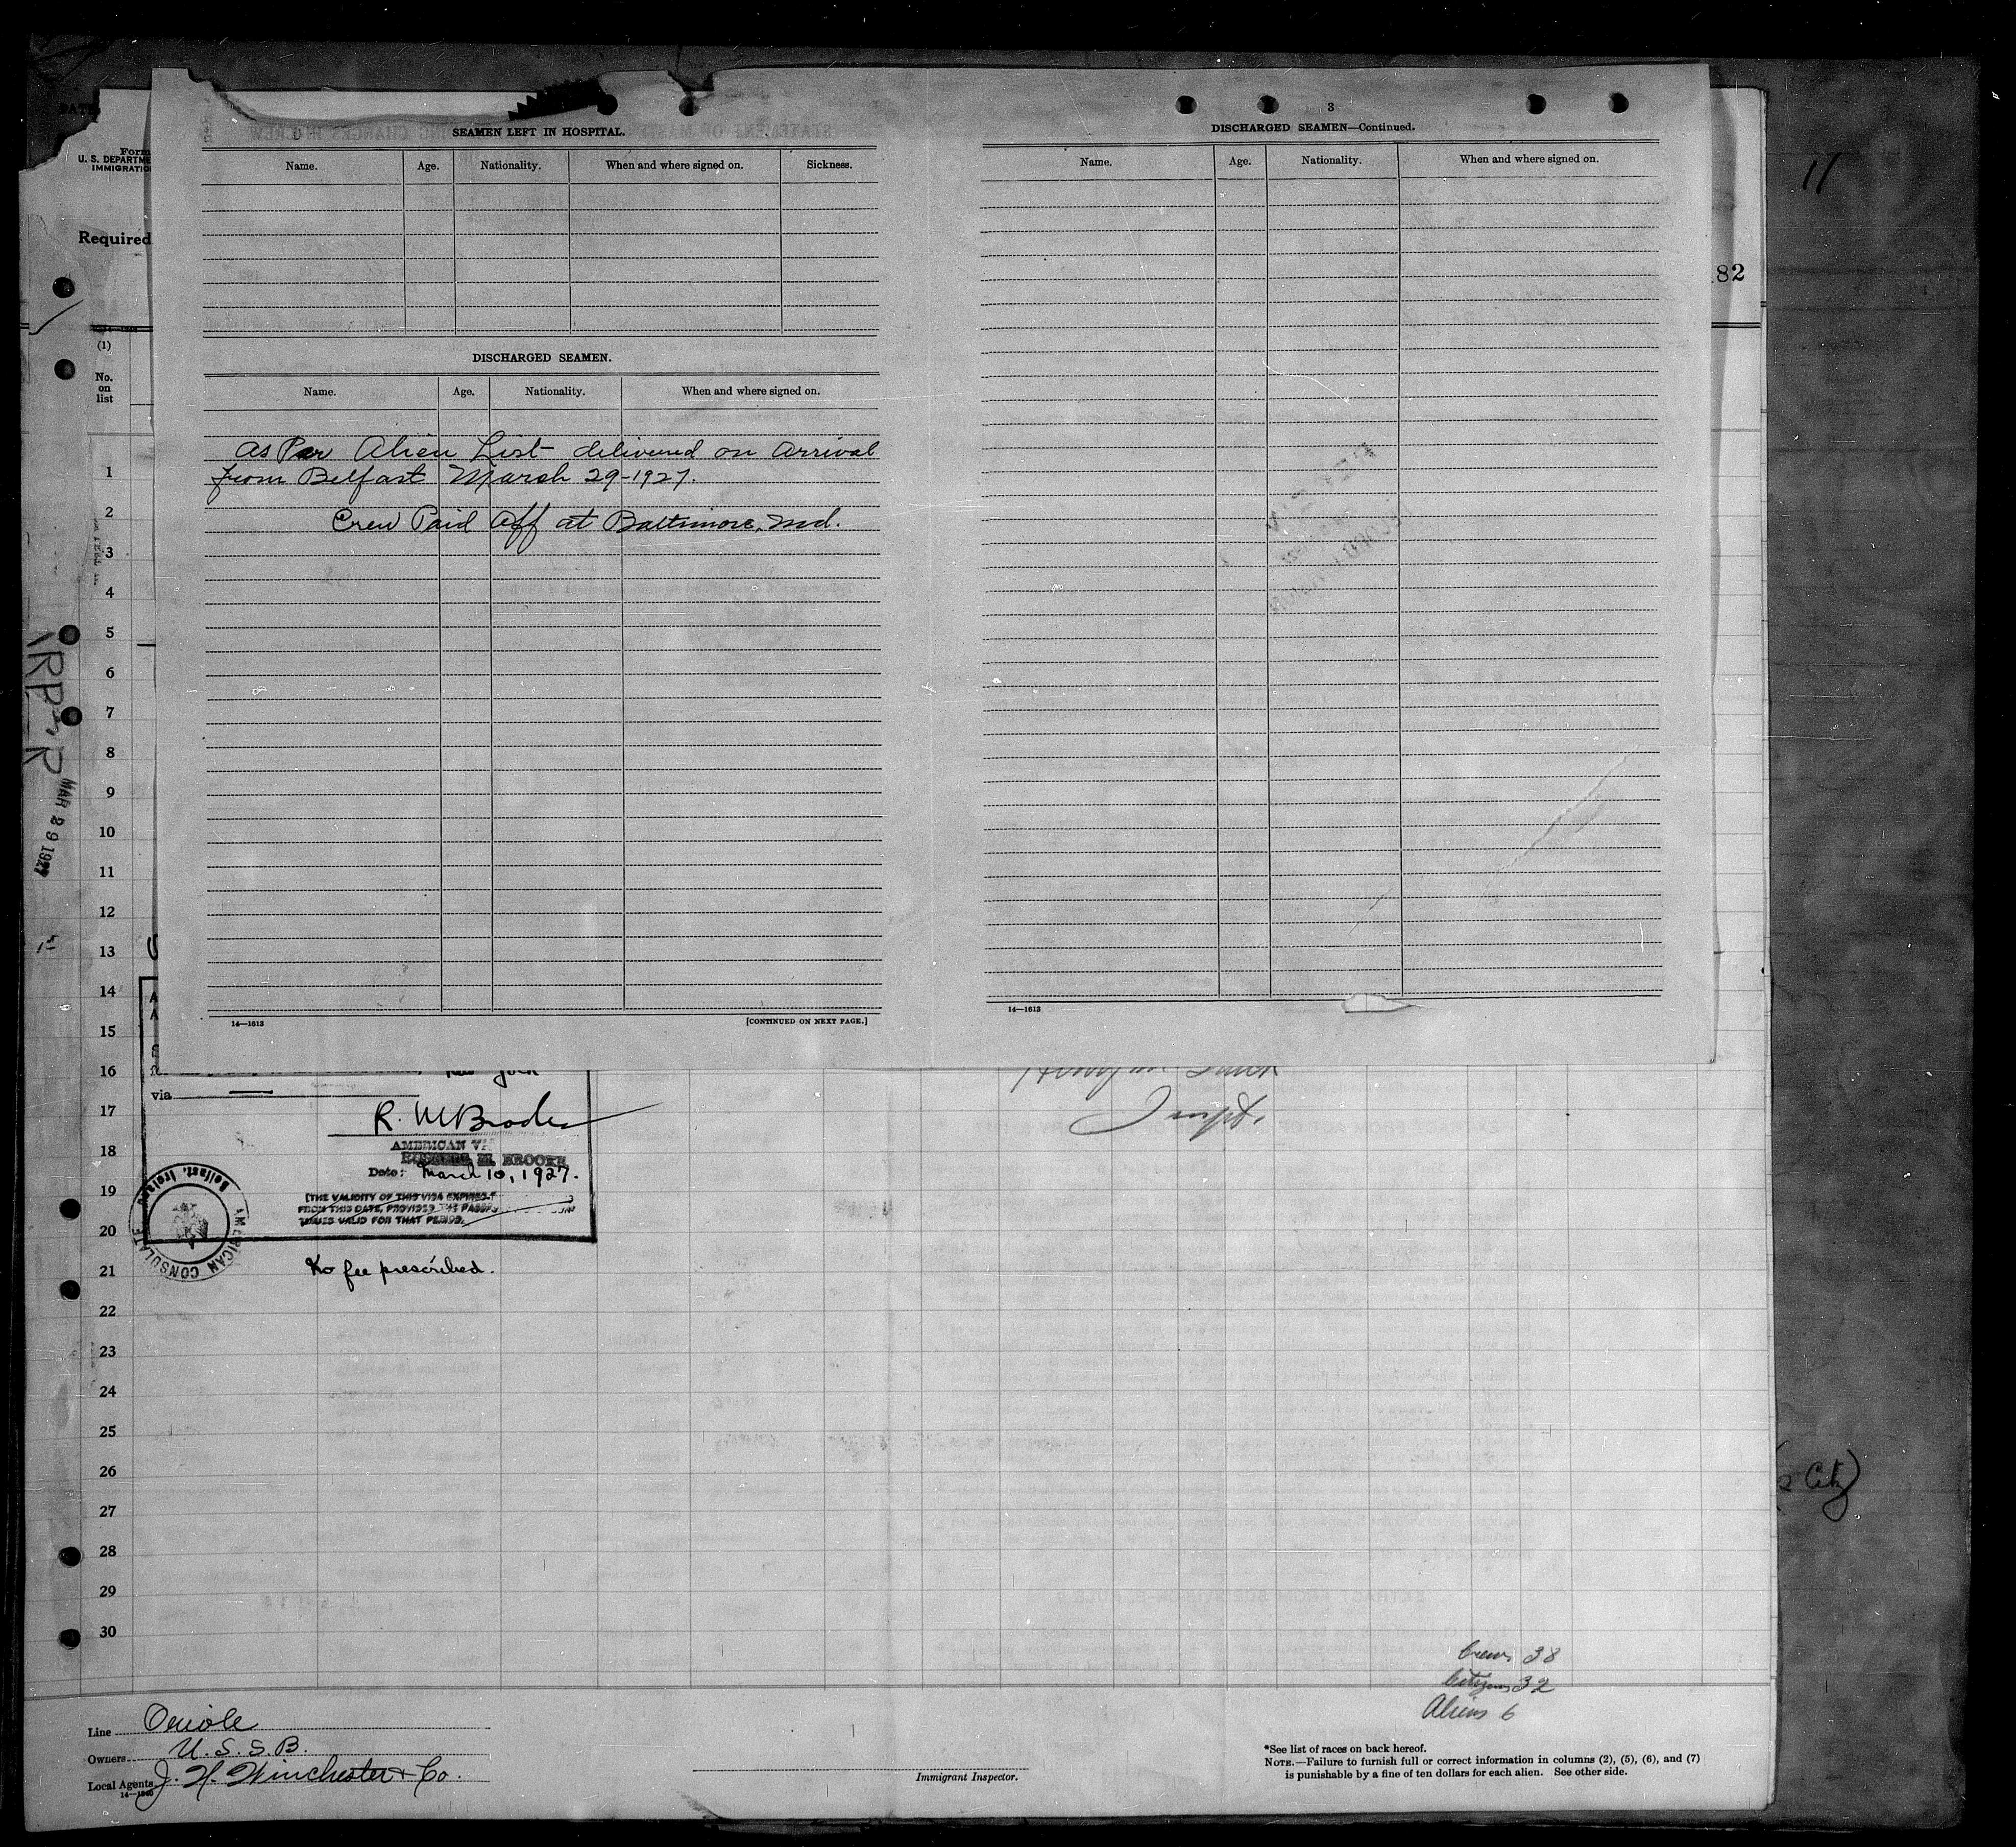 3
SEAMEN LEFT IN HOSPITAL.
Name. Age. Nationality. When and where signed on. Sickness.
DISCHARGED SEAMEN.
Name. Age. Nationality. When and where signed on.
As Per Alien List delivered on Arrival
from Belfast March 29-1927.
Crew Paid Off at Baltimore, Md.
14—1613
[CONTINUED ON NEXT PAGE.]
DISCHARGED SEAMEN—Continued.
Name. Age. Nationality. When and where signed on.
14—1613
11
82
DATE
Form
U. S. DEPARTME
IMMIGRATIO
Required
(1)
No.
on
list
1
2
3
4
5
6
7
8
9
10
11
12
13
14
15
16
17
18
19
20
21
22
23
24
25
26
27
28
29
30
MAR 29 1927
New York
via
R. M Brooke
AMERICAN V
BROOKE
Date: March 10, 1927.
THE VALIDITY OF THIS VISA EXPIRES
FROM THIS DATE, PROVIDED THE PASSP
TINUES VALID FOR THAT PERIOD.
AMERICAN CONSULATE
Belfast, Ireland
No fee prescribed.
Crew 38
Citizens 32
Aliens 6
Line Oriole
Owners U. S. S. B.
Local Agents J. H. Winchester & Co.
14—1240
Immigrant Inspector.
*See list of races on back hereof.
NOTE.—Failure to furnish full or correct information in columns (2), (5), (6), and (7)
is punishable by a fine of ten dollars for each alien. See other side.